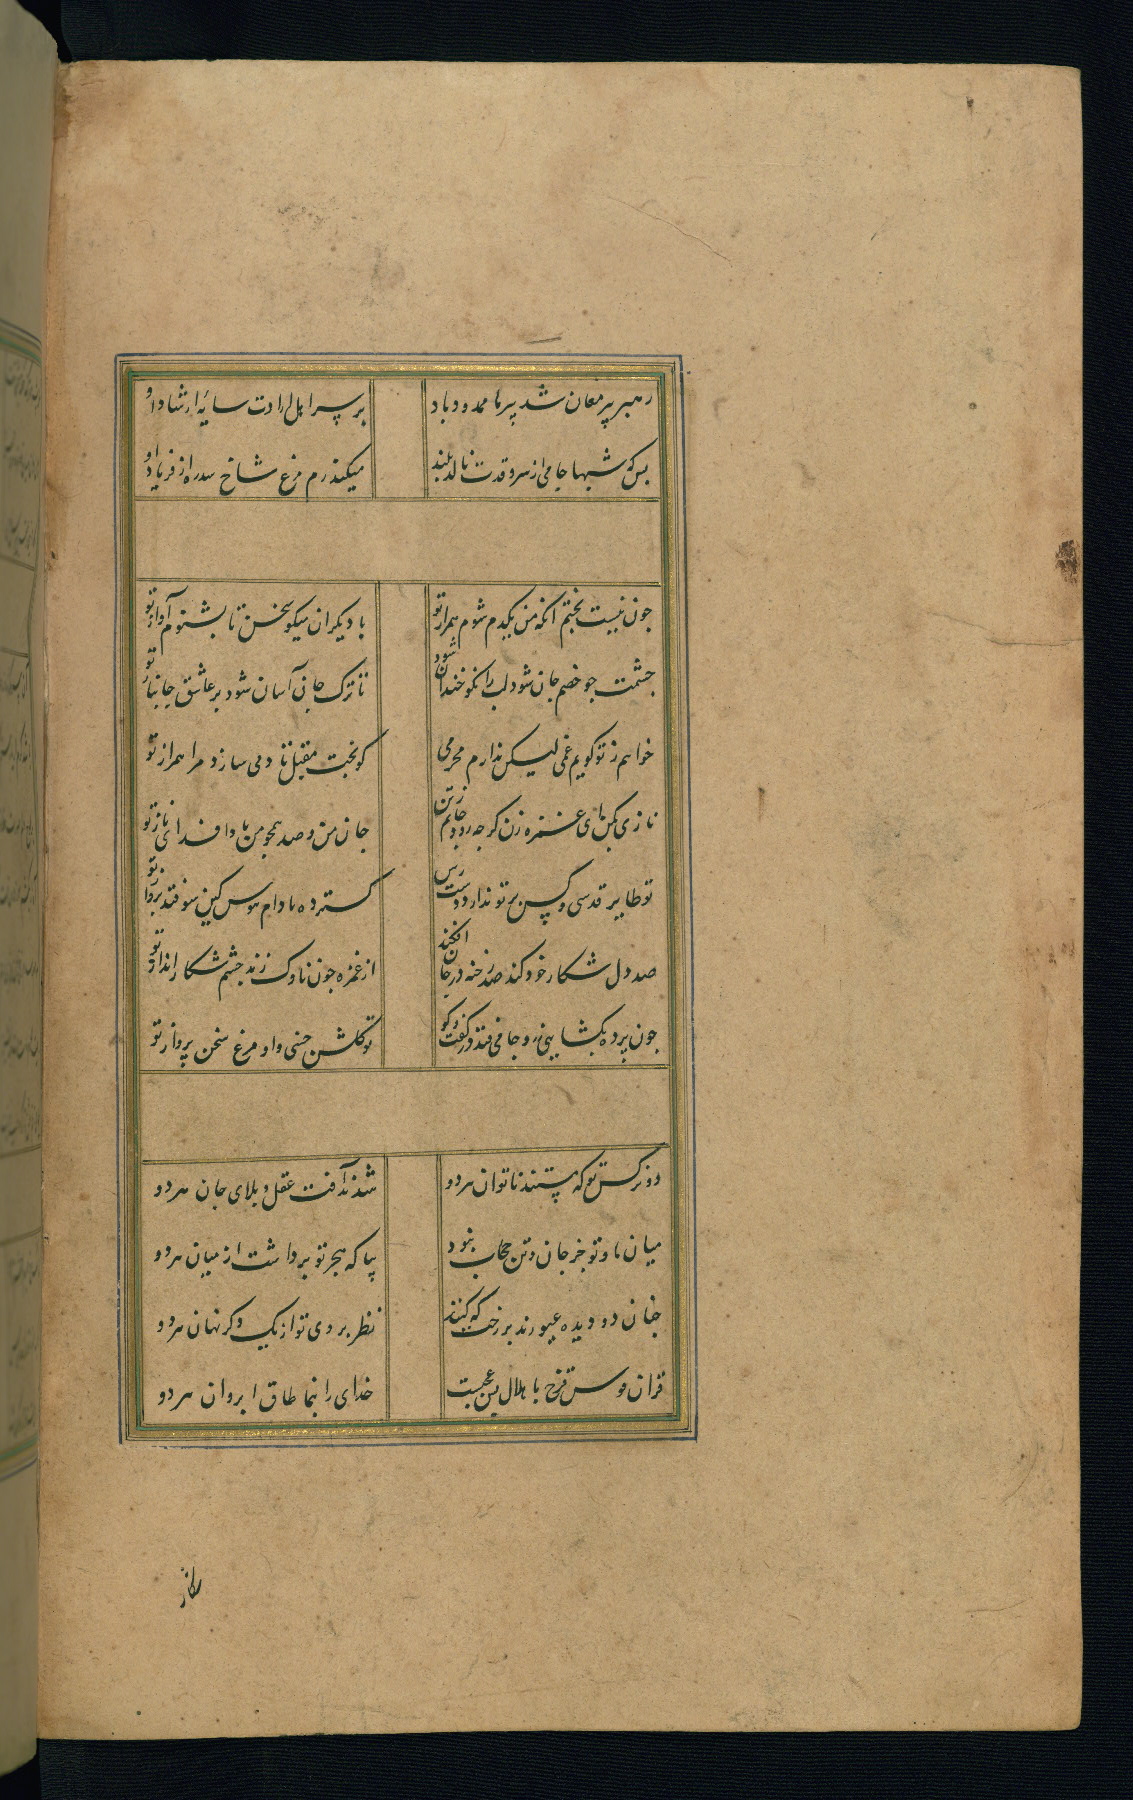 رهبر پیر مغان شد پیر ما ممدود باد بر سر اهل ارادت سایهٔ ارشاد او
بس که شبها جامی از سرو قدت نالد بلند میکندرم مرغ شاخ سدره از فریاد او
جون نیست بختم انکه من یکدم شوم همراز تو با دیکران میکو سخن تا بشنوم آواز تو
جشمت جو خصم جان شود لب را نکو خندان شود تا ترک جان آسان شود بر عاشق جانباز تو
خواهم ز تو کویم غمی لیکن ندارم محرمی کو بخت مقبل تا دمی سازد مرا همراز تو
نازی بکن ای غمزه زن کرجه رود جانم ز تن جان من و صد همجو من بادا فدای ناز تو
تو طایر قدسی و کس بر تو ندارد دست رس کسترده ما دام هوس کین سو فتد پرواز تو
صد دل شکار خود کند صد رخنه در جان افکند از غمزه جون ناوک زند جشم شکار انداز تو
جون پرده بکشایی ز رو جامی فتد در کفت و کو تو کلشن حسنی و او مرغ سخن پرداز تو
دو نرکس تو که مستند ناتوان هر دو شدند آفت عقل و بلای جان هر دو
میان ما و تو جز جان و تن حجاب نبود بیا که هجر تو برداشت از میان هر دو
جنان دو دیده غیورند بر رخت که کنند نظر بروی تو از یک دکر نهان هر دو
قران قوس قزح با هلال بس عجبست خدای را بنما طاق ابروان هر دو